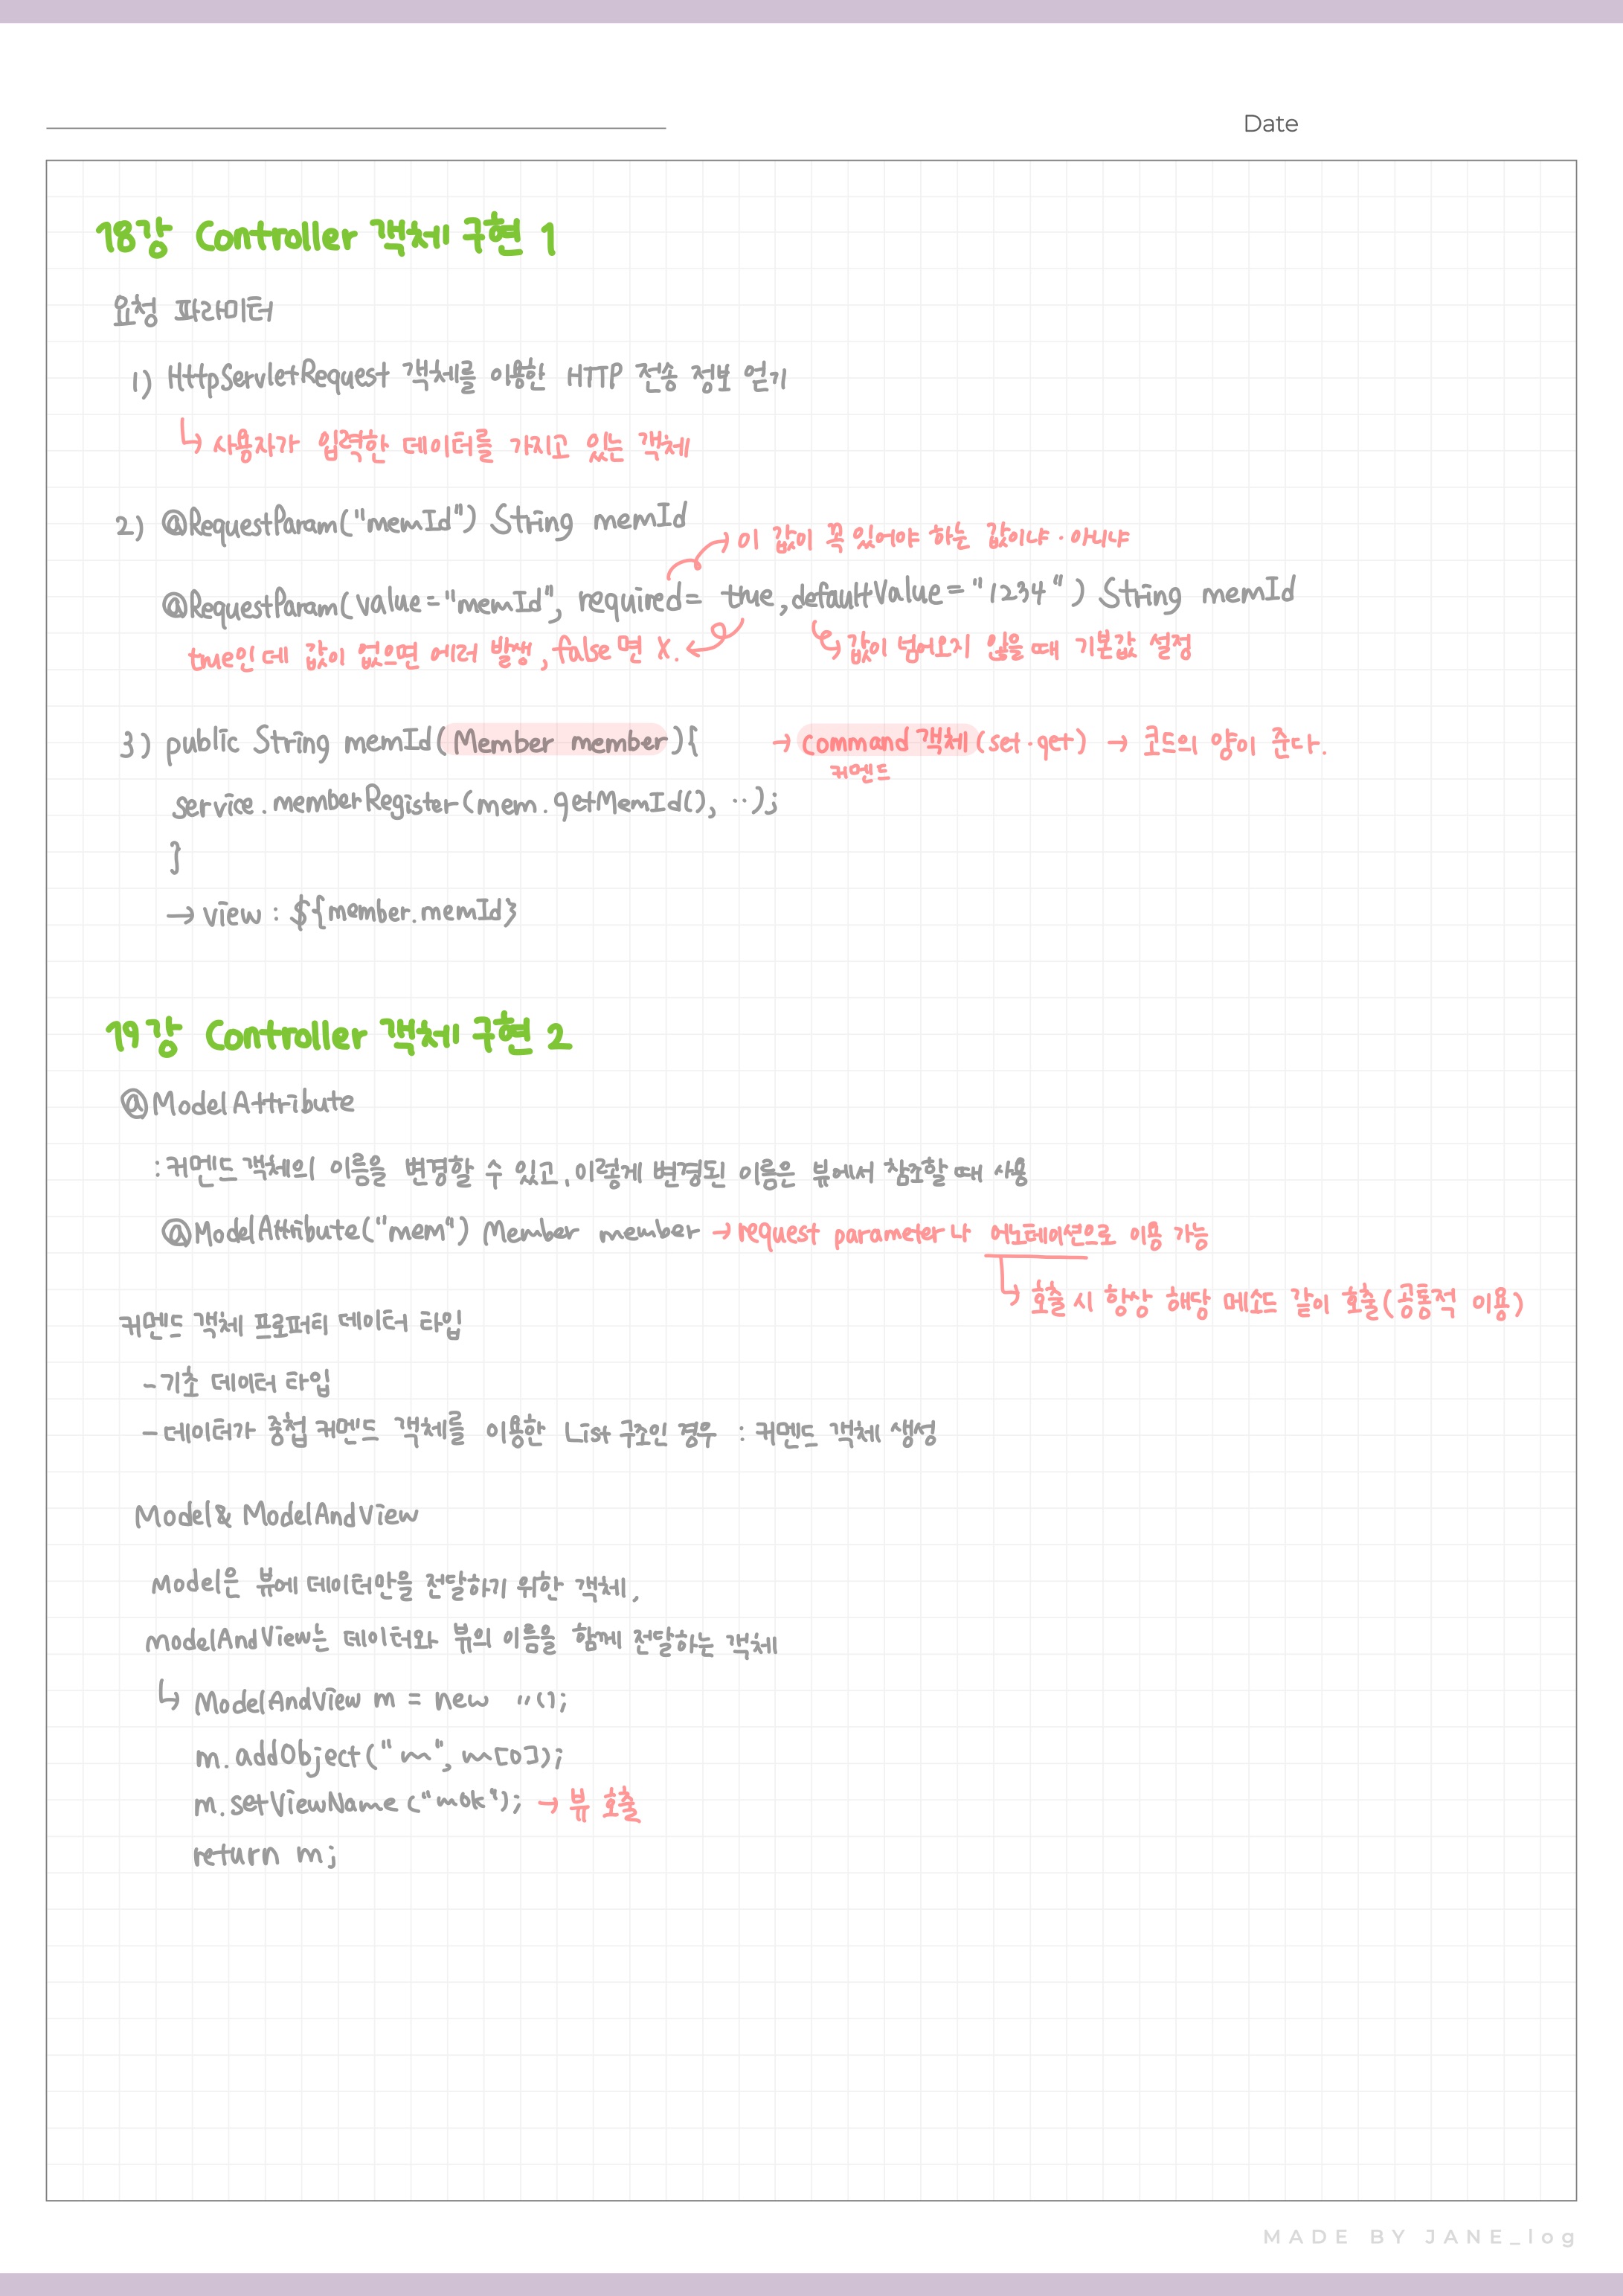 Date
18강 Controller 객체 구현 1
요청 파라미터
1) HttpServletRequest 객체를 이용한 HTTP 전송 정보 얻기
↳ 사용자가 입력한 데이터를 가지고 있는 객체
2) @RequestParam("memId") String memId
→ 이 값이 꼭 있어야 하는 값이냐·아니냐
@RequestParam(value="memId", required= true, defaultValue="1234") String memId
true인데 값이 없으면 에러 발생, false면 X. ← ↳ 값이 넘어오지 않을 때 기본값 설정
3) public String memId(Member member){ → Command 객체(set·get) → 코드의 양이 준다.
커멘드
service.memberRegister(mem.getMemId(), ··);
}
→ view : ${member.memId}
19강 Controller 객체 구현 2
@ModelAttribute
: 커멘드 객체의 이름을 변경할 수 있고, 이렇게 변경된 이름은 뷰에서 참조할 때 사용
@ModelAttribute("mem") Member member → request parameter나 어노테이션으로 이용 가능
↳ 호출 시 항상 해당 메소드 같이 호출(공통적 이용)
커멘드 객체 프로퍼티 데이터 타입
- 기초 데이터 타입
- 데이터가 중첩 커멘드 객체를 이용한 List 구조인 경우 : 커멘드 객체 생성
Model & ModelAndView
Model은 뷰에 데이터만을 전달하기 위한 객체,
ModelAndView는 데이터와 뷰의 이름을 함께 전달하는 객체
↳ ModelAndView m = new "();
m.addObject("~", ~[0]);
m.setViewName("mok"); → 뷰 호출
return m;
MADE BY JANE_log